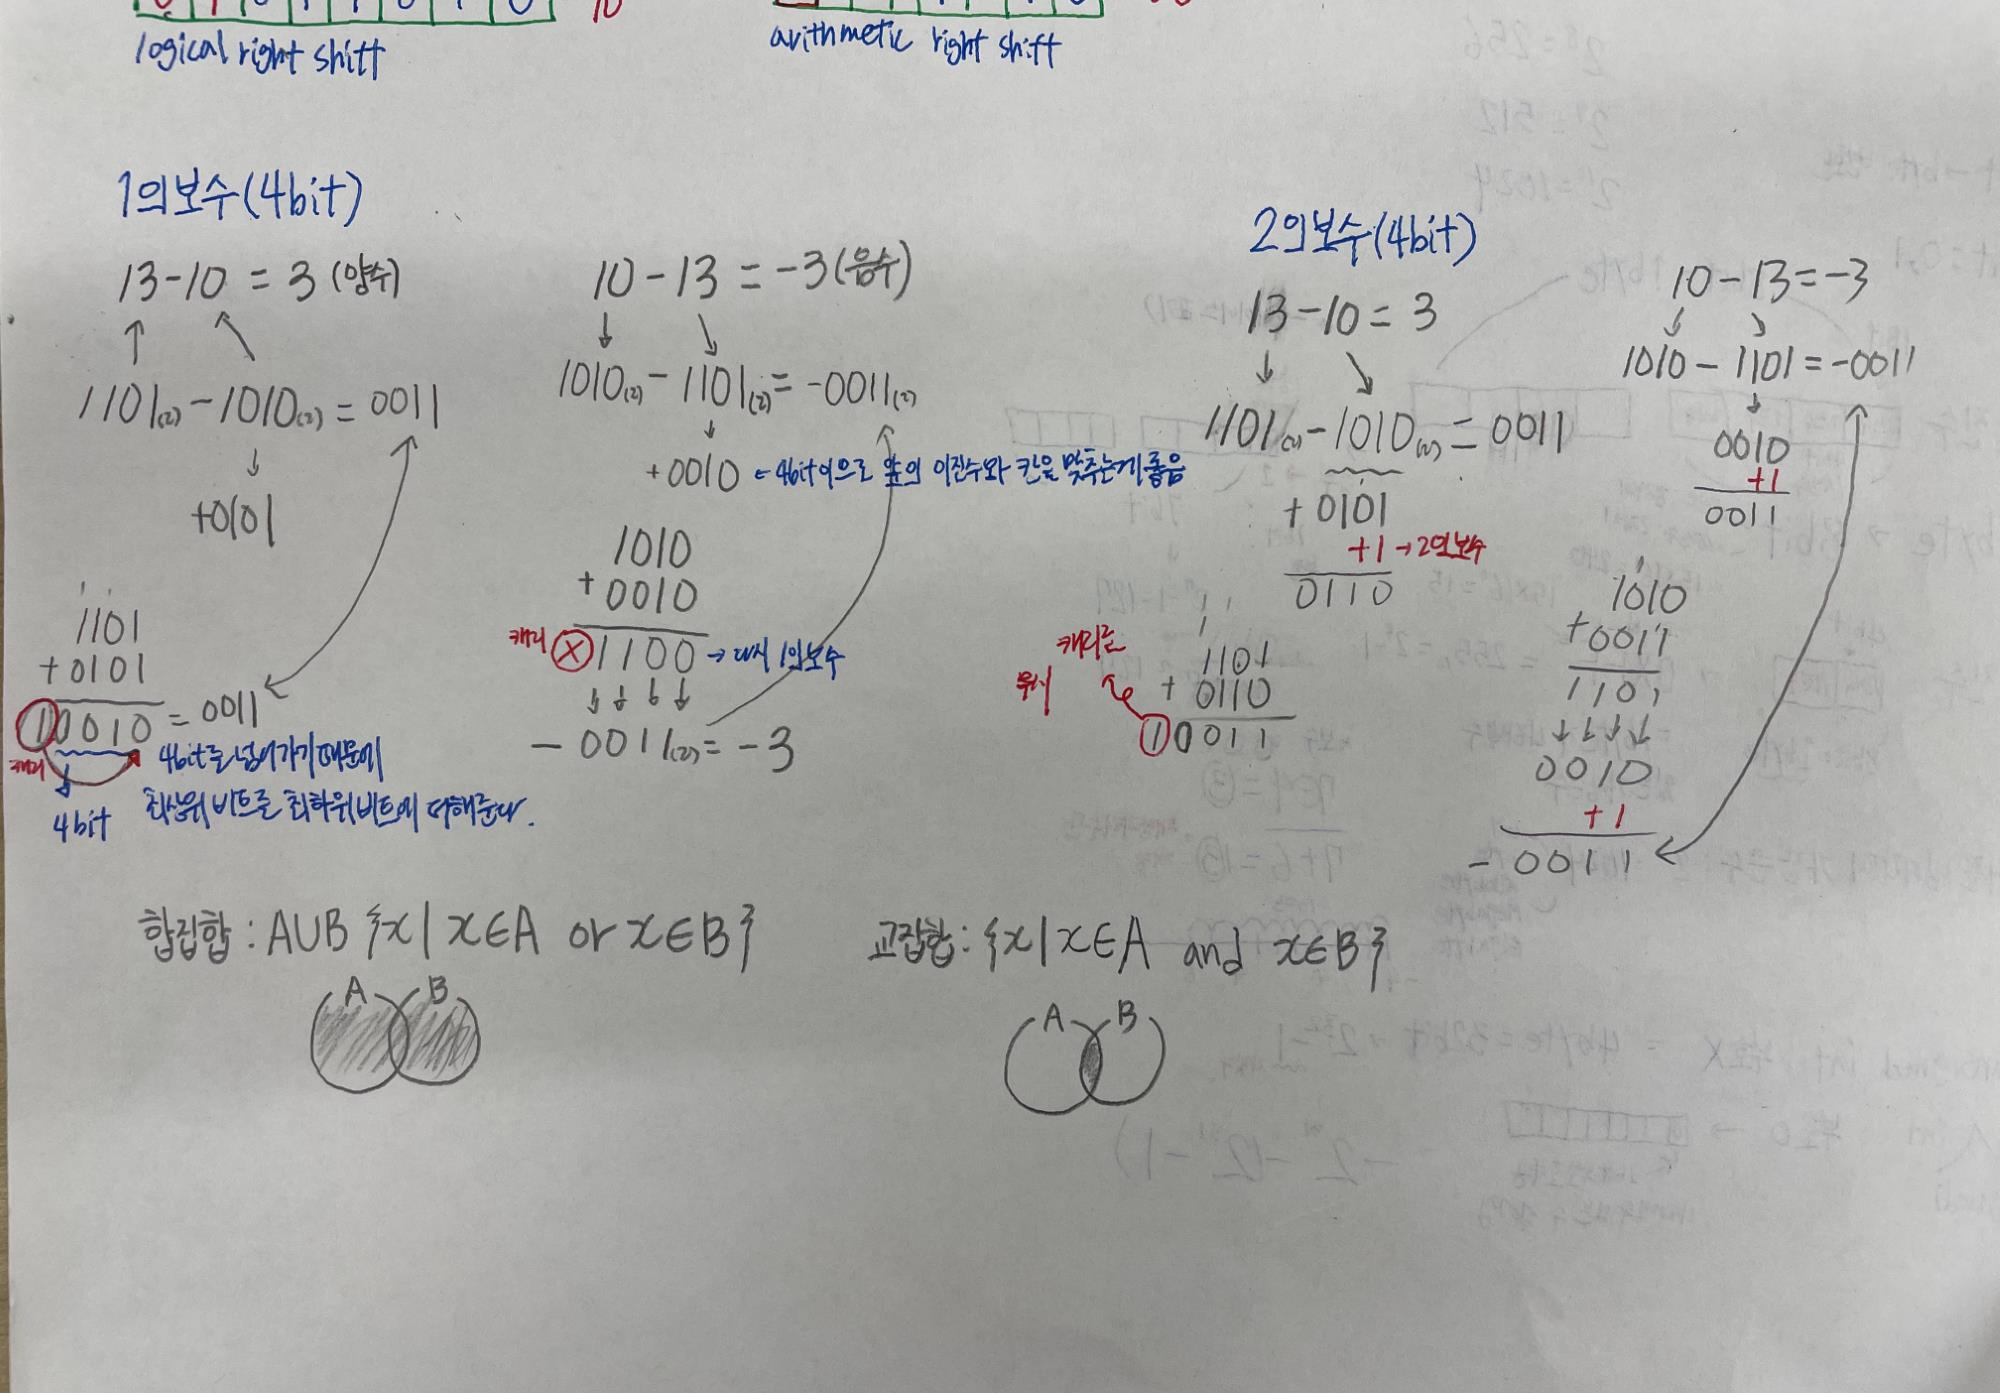 logical right shift
arithmetic right shift
1의보수(4bit)
13-10 = 3 (양수)
1101(2) - 1010(2) = 0011
+0101
1101
+0101
10010 = 0011
캐리
4bit
4bit를 넘어가기 때문에
최상위 비트를 최하위비트에 더해준다.
10-13 = -3 (음수)
1010(2) - 1101(2) = -0011(2)
+0010 ← 4bit이므로 앞의 이진수와 칸을 맞추는게 좋음
1010
+0010
캐리 X 1100 → 다시 1의보수
-0011(2) = -3
2의보수(4bit)
13-10 = 3
1101(2) - 1010(2) = 0011
+0101
+1 → 2의보수
0110
1 1
1
1101
+0110
10011
캐리는
무시
10-13 = -3
1010 - 1101 = -0011
0010
+1
0011
1010
+0011
1101
0010
+1
-0011
합집합 : A∪B {x | x∈A or x∈B}
A B
교집합 : {x | x∈A and x∈B}
A B